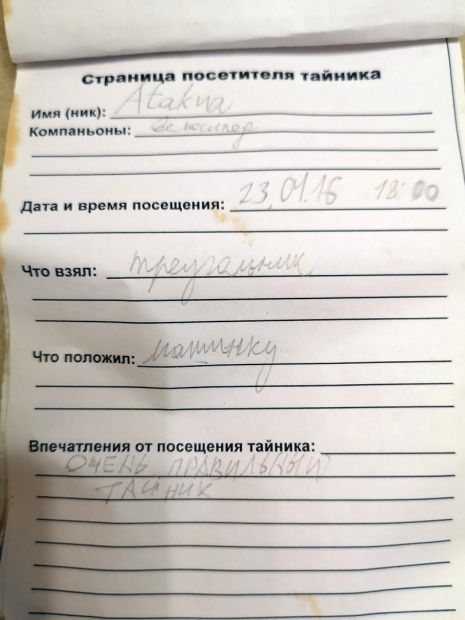 Страница посетителя тайника
Имя (ник): Atakua
Компаньоны: велосипед
Дата и время посещения: 23.04.16 18:00
Что взял: треугольник
Что положил: машинку
Впечатления от посещения тайника:
ОЧЕНЬ ПРАВИЛЬНЫЙ
ТАЙНИК